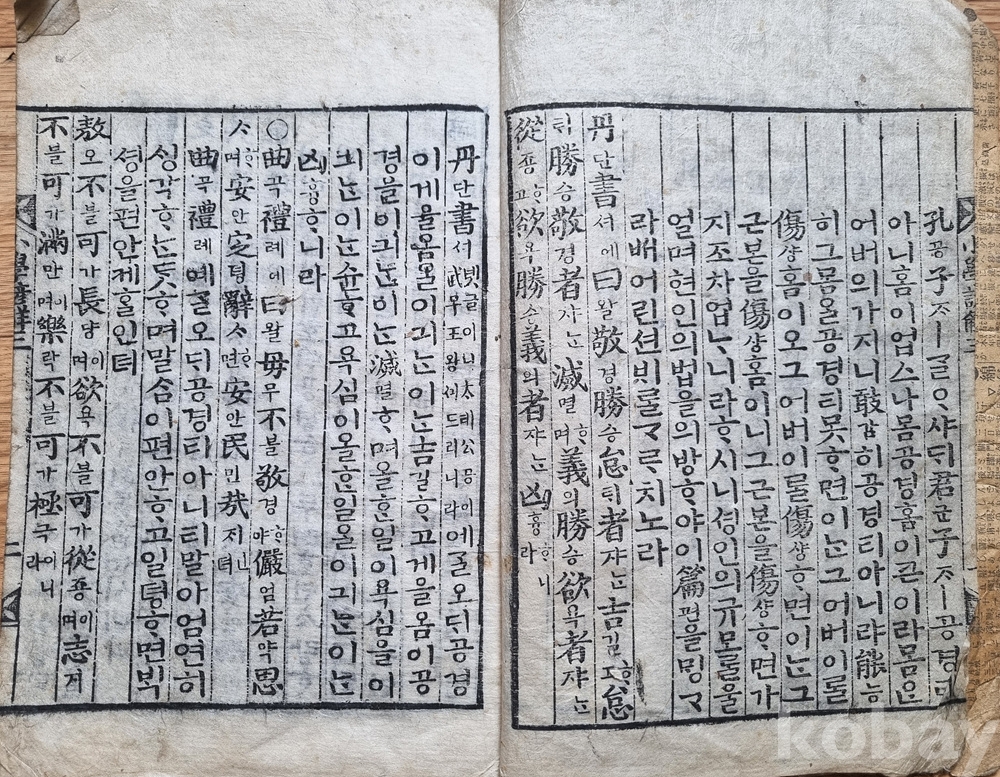 孔공子ᄌᆞㅣᄀᆞᆯᄋᆞ샤ᄃᆡ君군子ᄌᆞㅣ공경티
아니홈이업스나몸공경홈이큰이라몸은
어버의가지니敢감히공경티아니랴能능
히그몸을공경티못ᄒᆞ면이ᄂᆞᆫ그어버이ᄅᆞᆯ
傷샹홈이오그어버이ᄅᆞᆯ傷샹ᄒᆞ면이ᄂᆞᆫ그
근본을傷샹홈이니그근본을傷샹ᄒᆞ면가
지조차업ᄂᆞ니라ᄒᆞ시니셩인의규모ᄅᆞᆯ울
얼며현인의법을의방ᄒᆞ야이篇편을ᄆᆡᆼᄀᆞ
라ᄡᅥ어린션ᄇᆡᄅᆞᆯᄀᆞᄅᆞ치노라
丹단書셔에曰왈敬경勝승怠ᄐᆡ者쟈ᄂᆞᆫ吉길ᄒᆞ고怠
ᄐᆡ勝승敬경者쟈ᄂᆞᆫ滅멸ᄒᆞ며義의勝승欲욕者쟈ᄂᆞᆫ
從죵ᄒᆞ고欲욕勝승義의者쟈ᄂᆞᆫ凶흉ᄒᆞ니라
丹단書셔녯글이니太태公공이武무王왕ᄭᅴ드리니라에ᄀᆞᆯ오ᄃᆡ공경
이게을옴을이긔ᄂᆞᆫ이ᄂᆞᆫ吉길ᄒᆞ고게을옴이공
경을이긔ᄂᆞᆫ이ᄂᆞᆫ滅멸ᄒᆞ며올ᄒᆞᆫ일이욕심을이
긔ᄂᆞᆫ이ᄂᆞᆫ슌ᄒᆞ고욕심이올ᄒᆞᆫ일을이긔ᄂᆞᆫ이ᄂᆞᆫ
凶흉ᄒᆞ니라
○曲곡禮례예曰왈毋무不블敬경ᄒᆞ야儼엄若약思
ᄉᆞᄒᆞ며安안定뎡辭ᄉᆞᄒᆞ면安안民민哉ᄌᆡ인뎌
曲곡禮례예ᄀᆞᆯ오ᄃᆡ공경티아니티말아엄연히
ᄉᆡᆼ각ᄒᆞᄂᆞᆫᄃᆞᆺᄒᆞ며말ᄉᆞᆷ이편안ᄒᆞ고일뎡ᄒᆞ면ᄇᆡᆨ
셩을편안케ᄒᆞᆯ인뎌
敖오不블可가長댱이며欲욕不블可가從죵이며志지
不블可가滿만이며樂락不블可가極극이니라
kobay